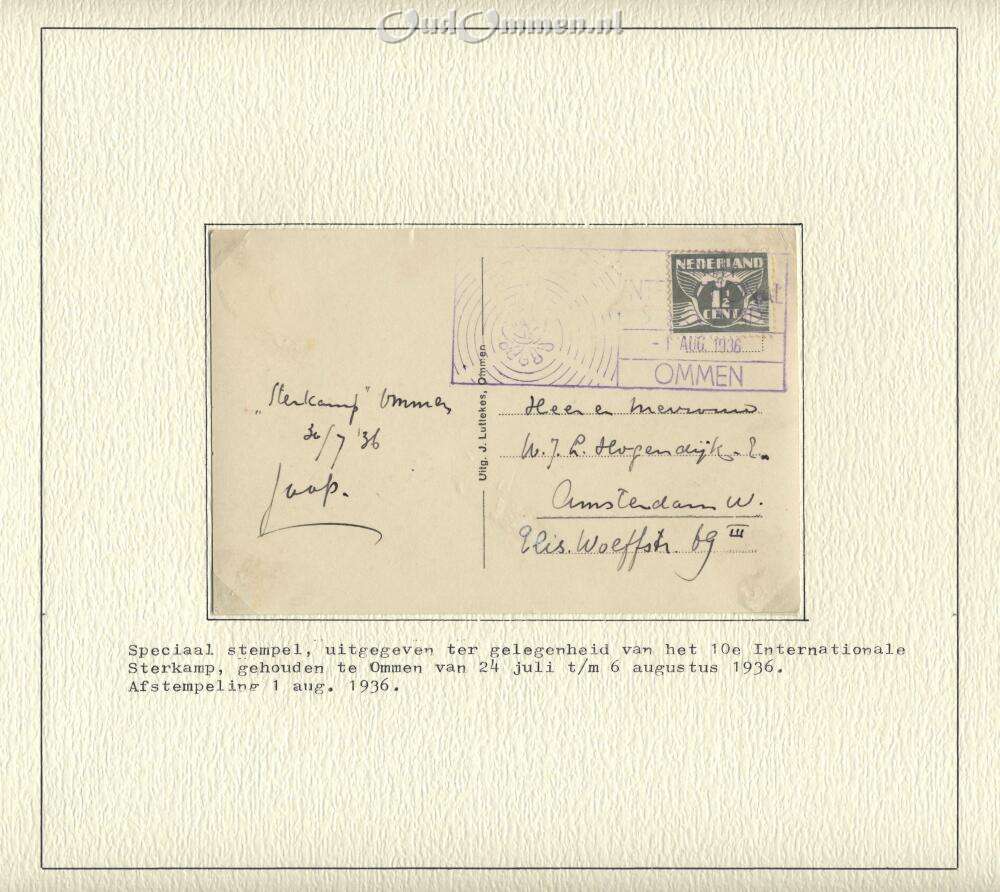 OudOmmen.nl
NEDERLAND
1½
CENT
-1 AUG. 1936
OMMEN
„Sterkamp" Ommen
30/7 '36
Joop.
Uitg. J. Lutlekes, Ommen
Heer en Mevrouw
W. J. L. Hogendijk
Amsterdam W.
Elis. Wolffstr. 69 III
Speciaal stempel, uitgegeven ter gelegenheid van het 10e Internationale
Sterkamp, gehouden te Ommen van 24 juli t/m 6 augustus 1936.
Afstempeling 1 aug. 1936.